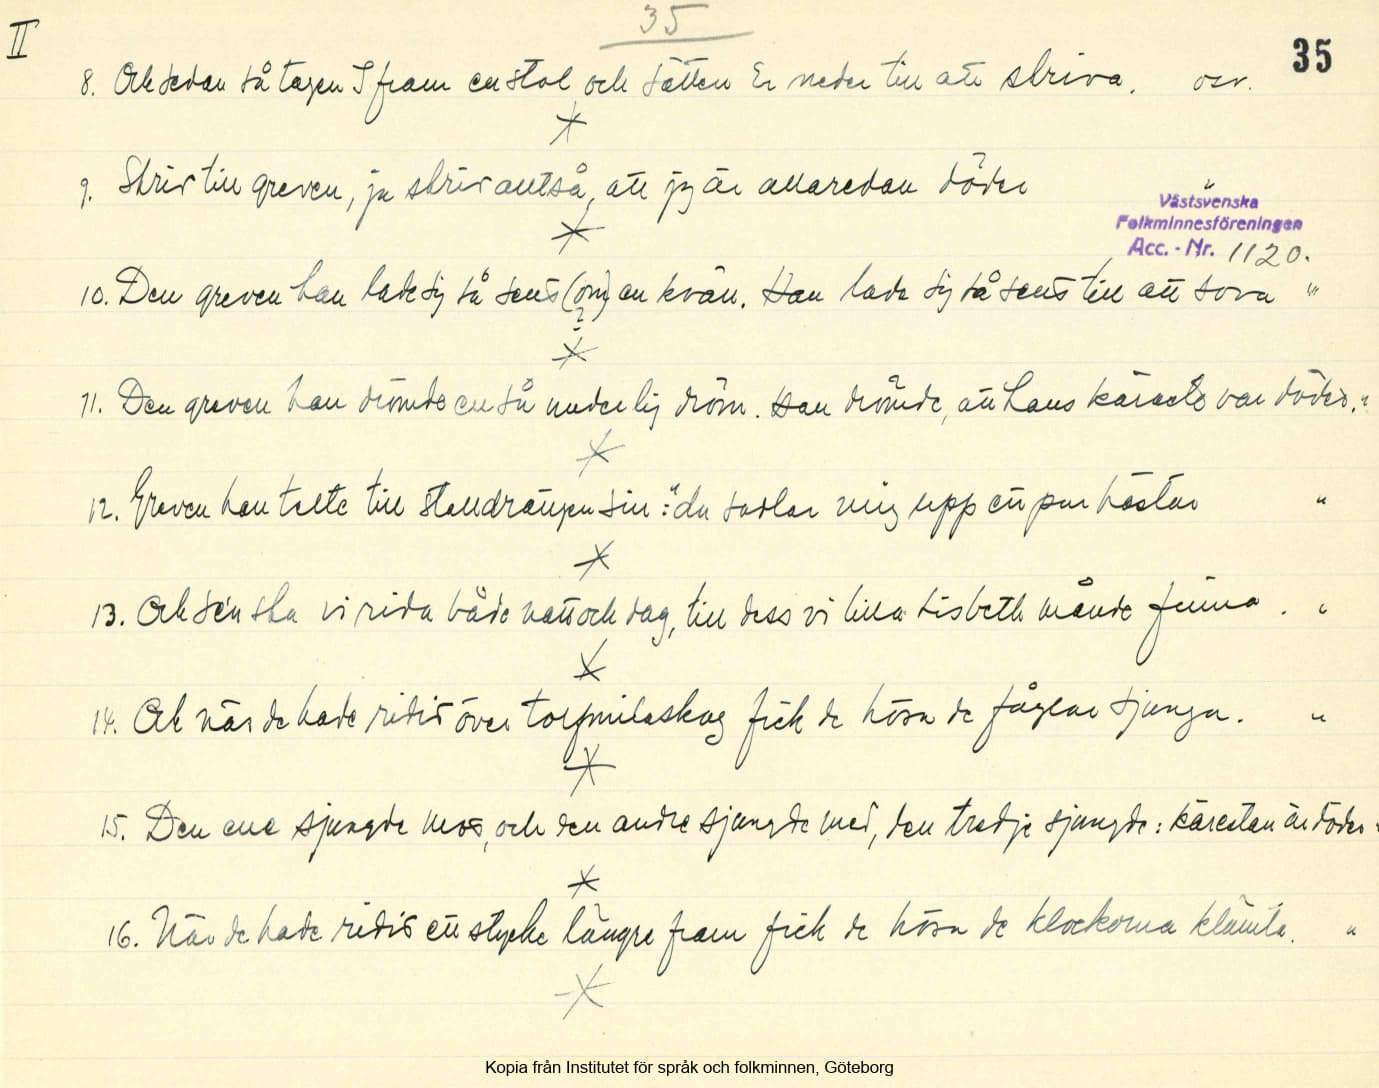 35
II
35
8. Och sedan så tagen I fram en stol och sätten Er neder till att skriva. osv.
9. Skriv till greven, ja skriv alltså, att jag är allaredan döder "
Västsvenska
Folkminnesföreningen
Acc. - Nr. 1120.
10. Den greven han lade sig så sent (om) en kväll. Han lade sig så sent till att sova "
?
11. Den greven han drömde en så underlig dröm. Han drömde, att hans käraste var döder. "
12. Greven han talte till stalldrängen sin: "du sadlar mig upp ett par hästar "
13. Och se'n ska vi rida både natt och dag, till dess vi lilla Lisbeth månde finna. "
14. Och när de hade ridit över tolfmilaskog fick de höra de fåglar sjunga. "
15. Den ene sjungde mot, och den andre sjungde med, den tredje sjungde: kärestan är döder "
16. När de hade ridit ett stycke längre fram fick de höra de klockorna klämta. "
Kopia från Institutet för språk och folkminnen, Göteborg